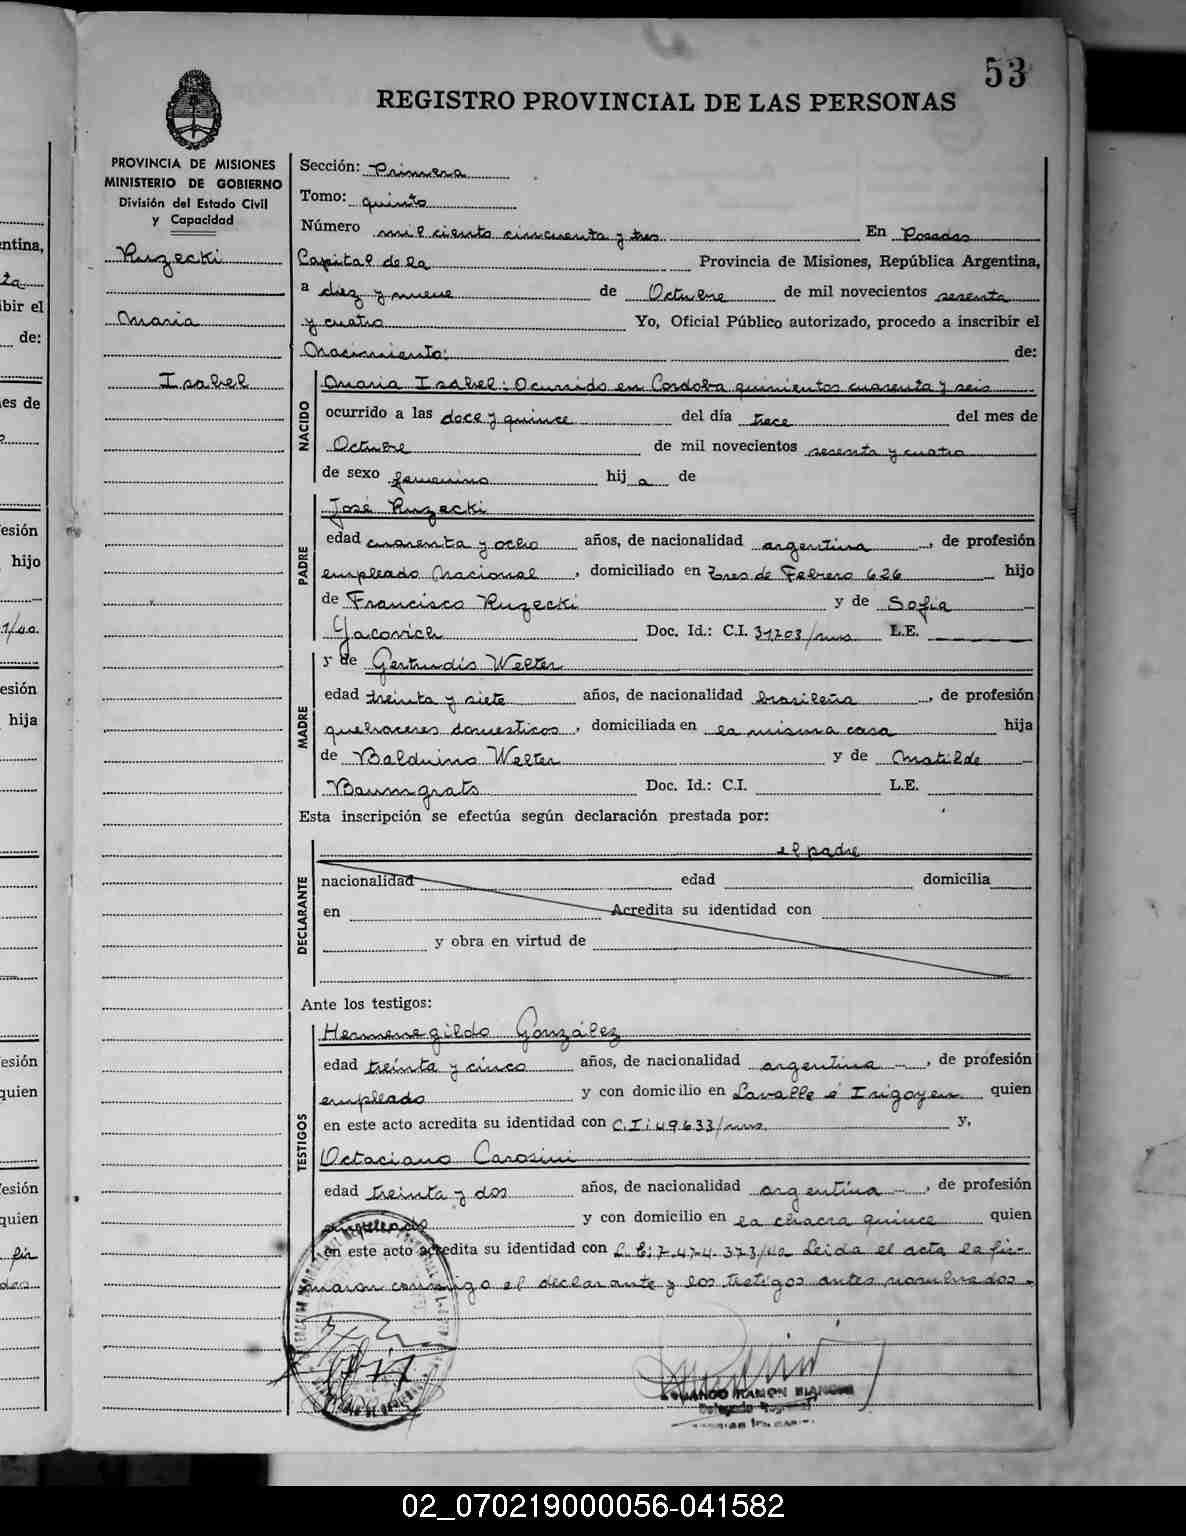 53
REGISTRO PROVINCIAL DE LAS PERSONAS
PROVINCIA DE MISIONES
MINISTERIO DE GOBIERNO
División del Estado Civil
y Capacidad
Ruzecki
Maria
Isabel
Sección: Primera
Tomo: quinto
Número mil ciento cincuenta y tres En Posadas
Capital de la Provincia de Misiones, República Argentina,
a diez y nueve de Octubre de mil novecientos sesenta
y cuatro Yo, Oficial Público autorizado, procedo a inscribir el
Nacimiento: de:
NACIDO
Maria Isabel: Ocurrido en Cordoba quinientos cuarenta y seis
ocurrido a las doce y quince del día trece del mes de
Octubre de mil novecientos sesenta y cuatro
de sexo femenino hija de
PADRE
José Ruzecki
edad cuarenta y ocho años, de nacionalidad argentina, de profesión
empleado Nacional, domiciliado en Tres de Febrero 626 hijo
de Francisco Ruzecki y de Sofia
Yacovich Doc. Id.: C.I. 31203/mns L.E.
MADRE
y de Gertrudis Welter
edad treinta y siete años, de nacionalidad brasileña, de profesión
quehaceres domesticos, domiciliada en la misma casa hija
de Balduino Welter y de Matilde
Baumgrats Doc. Id.: C.I. L.E.
Esta inscripción se efectúa según declaración prestada por:
DECLARANTE
el padre
nacionalidad edad domicilia
en Acredita su identidad con
y obra en virtud de
Ante los testigos:
TESTIGOS
Hermenegildo González
edad treinta y cinco años, de nacionalidad argentina, de profesión
empleado y con domicilio en Lavalle é Irigoyen quien
en este acto acredita su identidad con C.I: 49633/mns y,
Octaciano Carosini
edad treinta y dos años, de nacionalidad argentina, de profesión
empleado y con domicilio en la chacra quince quien
en este acto acredita su identidad con L.E: 7.474.373/40 Leida el acta la fir-
maron conmigo el declarante y los testigos antes nombrados.
RAMON BIANCHI
Delegado Regional
02_070219000056-041582